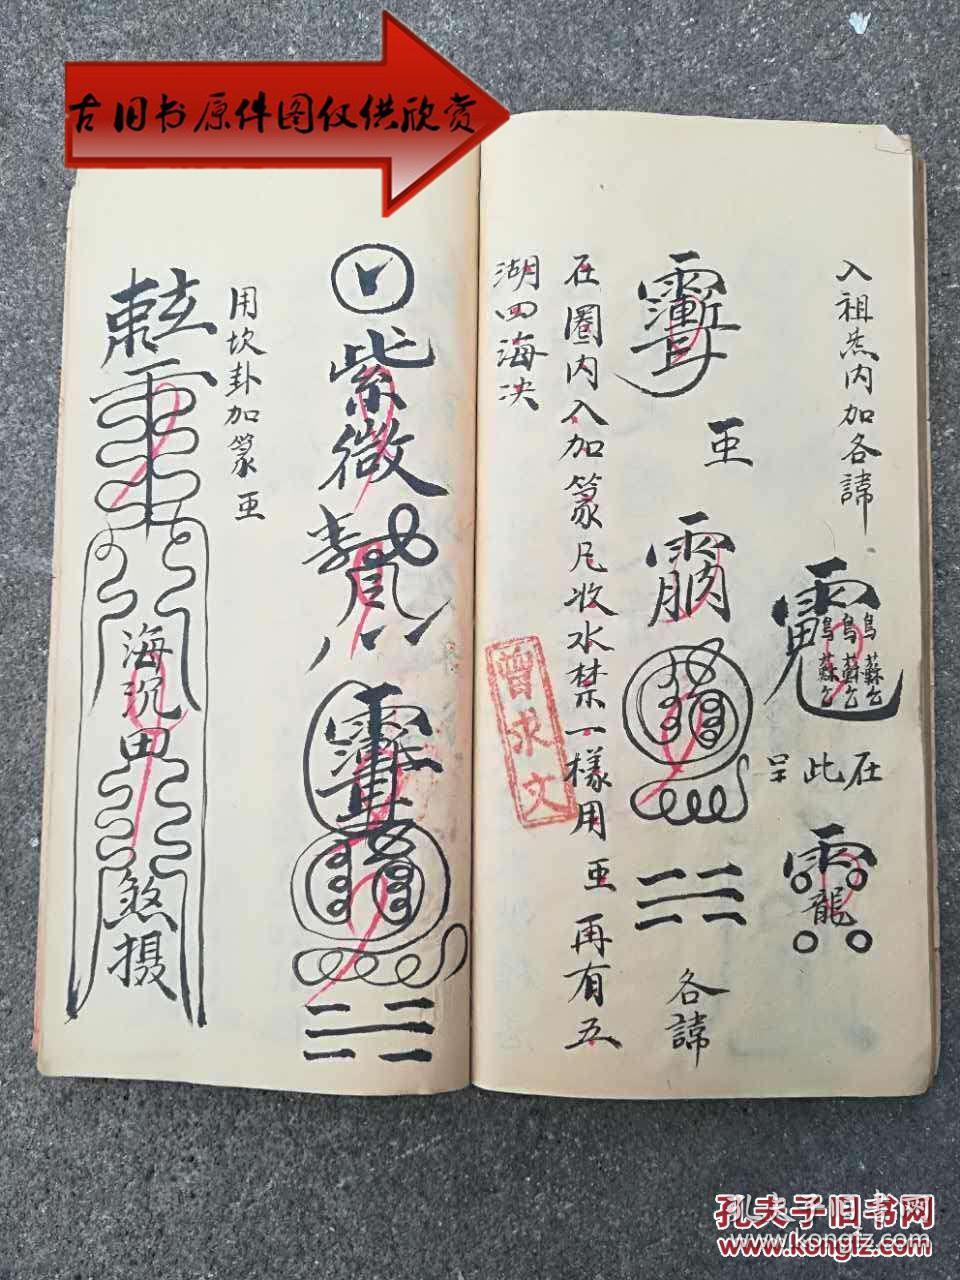 古旧书原件图仅供欣赏
入祖炁内加各諱
在此呈
龍
亚
各諱
在圈内入加篆凡收水禁一樣用亚再有五
湖四海决
曾求文
紫微
用坎卦加篆亚
海沉田
煞摄
孔夫子旧书网
www.kongfz.com